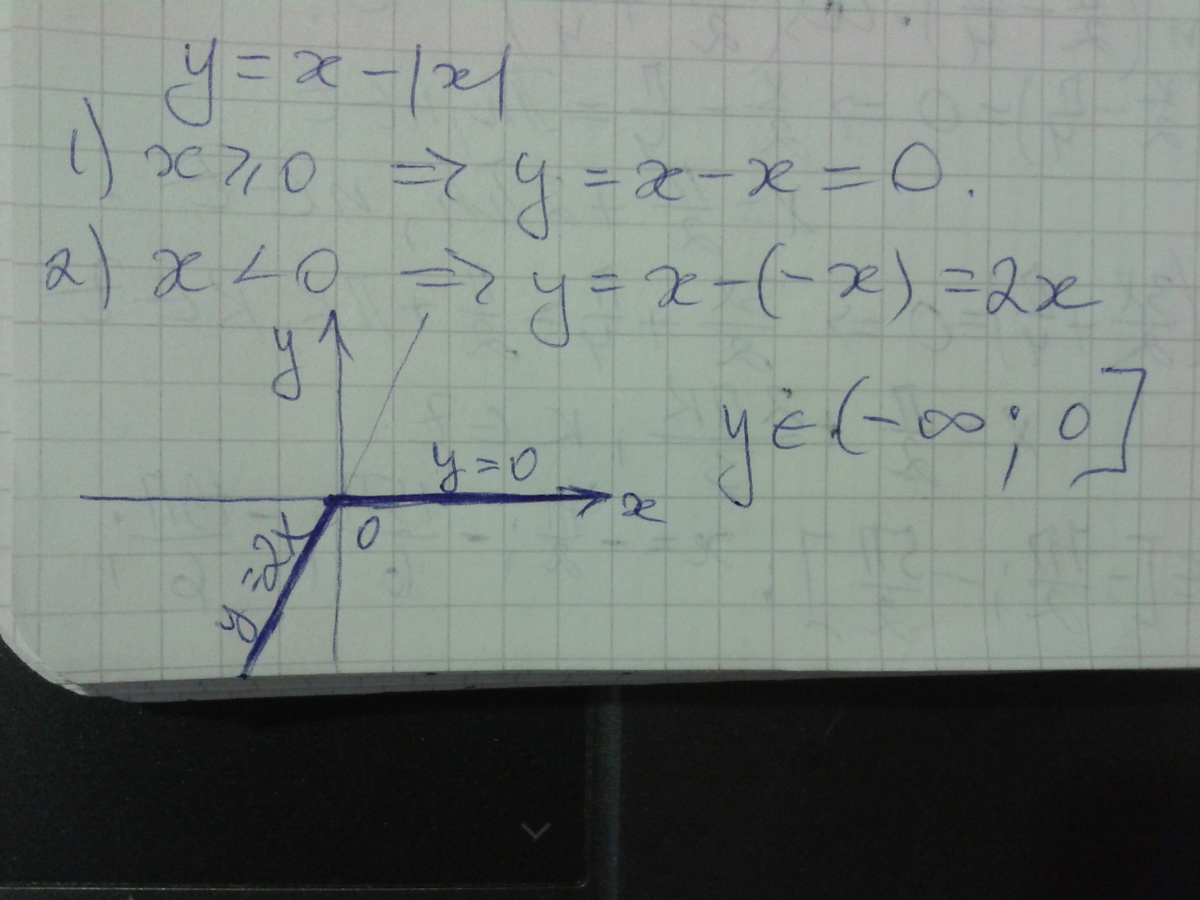 y = x - |x|
1) x ⩾ 0 ⇒ y = x - x = 0.
2) x < 0 ⇒ y = x - (-x) = 2x
y
y ∈ (-∞; 0]
y = 0
x
0
y = 2x